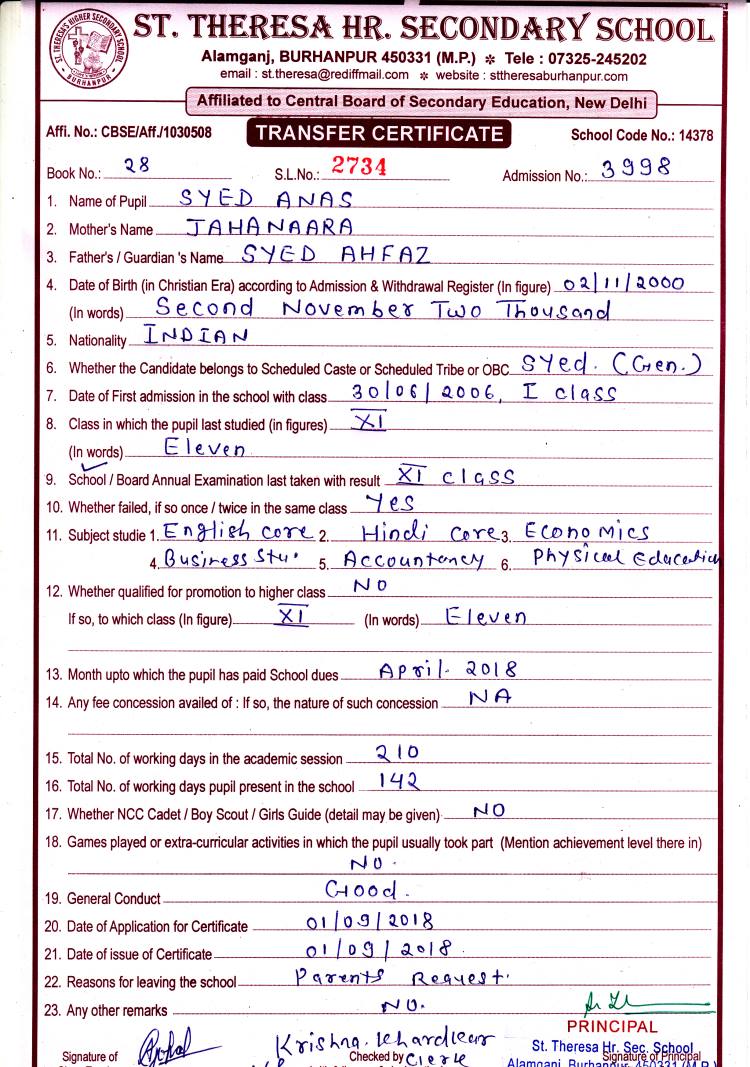 ST. THERESA HR. SECONDARY SCHOOL
Alamganj, BURHANPUR 450331 (M.P.) ✻ Tele : 07325-245202
email : st.theresa@rediffmail.com ✻ website : sttheresaburhanpur.com
Affiliated to Central Board of Secondary Education, New Delhi
Affi. No.: CBSE/Aff./1030508 TRANSFER CERTIFICATE School Code No.: 14378
Book No.: 28 S.L.No.: 2734 Admission No.: 3998
1. Name of Pupil SYED ANAS
2. Mother's Name JAHANAARA
3. Father's / Guardian 's Name SYED AHFAZ
4. Date of Birth (in Christian Era) according to Admission & Withdrawal Register (In figure) 02/11/2000
(In words) Second November Two Thousand
5. Nationality INDIAN
6. Whether the Candidate belongs to Scheduled Caste or Scheduled Tribe or OBC Syed. (Gen.)
7. Date of First admission in the school with class 30/06/2006, I class
8. Class in which the pupil last studied (in figures) XI
(In words) Eleven
9. School / Board Annual Examination last taken with result XI class
10. Whether failed, if so once / twice in the same class Yes
11. Subject studie 1. English core 2. Hindi core 3. Economics
4. Business Stu. 5. Accountancy 6. Physical Education
12. Whether qualified for promotion to higher class NO
If so, to which class (In figure) XI (In words) Eleven
13. Month upto which the pupil has paid School dues April- 2018
14. Any fee concession availed of : If so, the nature of such concession NA
15. Total No. of working days in the academic session 210
16. Total No. of working days pupil present in the school 142
17. Whether NCC Cadet / Boy Scout / Girls Guide (detail may be given) NO
18. Games played or extra-curricular activities in which the pupil usually took part (Mention achievement level there in)
NO.
19. General Conduct Good.
20. Date of Application for Certificate 01/09/2018
21. Date of issue of Certificate 01/09/2018
22. Reasons for leaving the school Parents Request.
23. Any other remarks NO.
PRINCIPAL
Krishna. Khardkar
St. Theresa Hr. Sec. School
Signature of Checked by Clerk Signature of Principal
Alamganj, Burhanpur 450331 (M.P.)